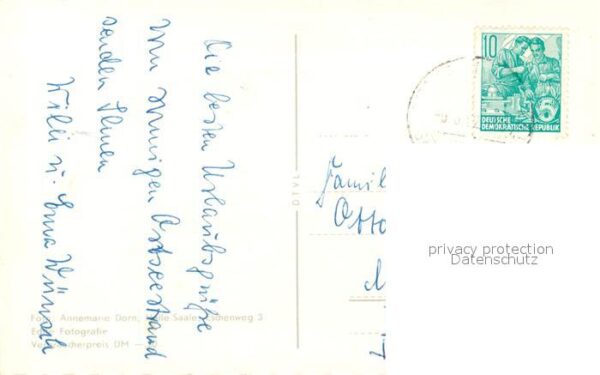 Die besten Urlaubsgrüße
vom sonnigen Ostseestrand
senden Ihnen
Willi u. Erna Wünsch
Foto: Annemarie Dorn, Halle-Saale,
Echte Fotografie
Verbraucherpreis DM
10
DEUTSCHE
DEMOKRATISCHE REPUBLIK
Famil
Otto
privacy protection
Datenschutz